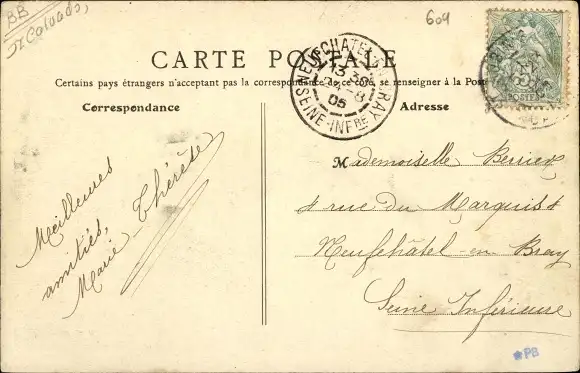 BB
Calvados
609
CARTE POSTALE
NEUFCHATEL-EN-BRAY
13 30
8
05
SEINE-INFRE
Certains pays étrangers n'acceptant pas la correspondance se renseigner à la Poste
Correspondance
Adresse
Meilleures
amitiés,
Marie-Thérèse
Mademoiselle
4 rue du Marquis
Neufchâtel-en Bray
Seine Inférieure
PB